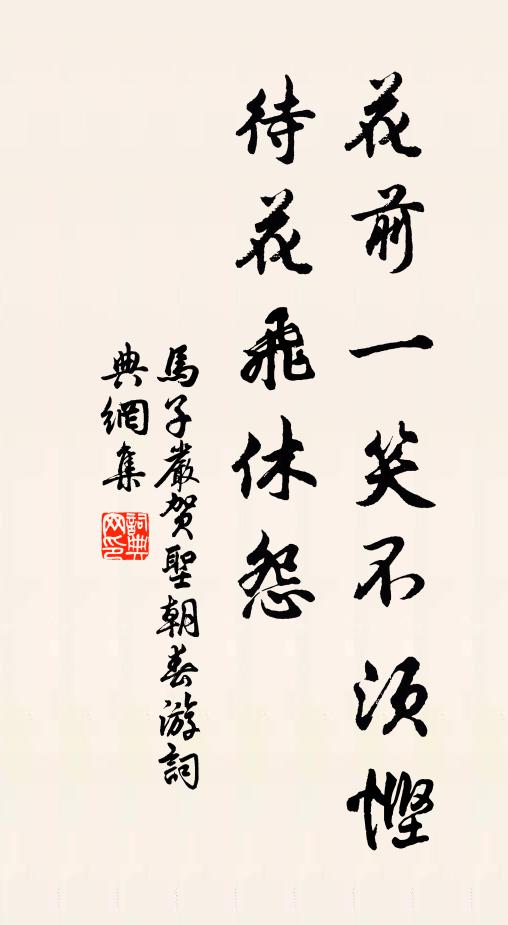 花前一笑不須慳
待花飛休怨
馬子嚴賀聖朝春游詞
典網集
詞典
网印